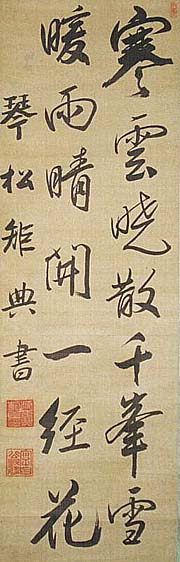 寒雲曉散千峯雪
暖雨晴開一径花
琴松雅典書